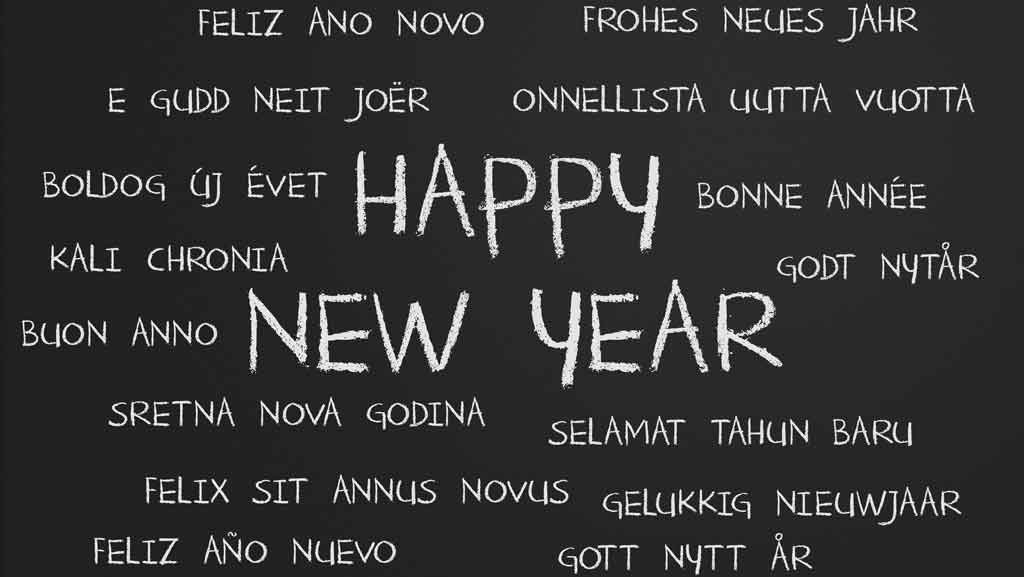 FELIZ ANO NOVO
FROHES NEUES JAHR
E GUDD NEIT JOËR
ONNELLISTA UUTTA VUOTTA
BOLDOG ÚJ ÉVET
HAPPY
BONNE ANNÉE
KALI CHRONIA
GODT NYTÅR
BUON ANNO
NEW YEAR
SRETNA NOVA GODINA
SELAMAT TAHUN BARU
FELIX SIT ANNUS NOVUS
GELUKKIG NIEUWJAAR
FELIZ AÑO NUEVO
GOTT NYTT ÅR